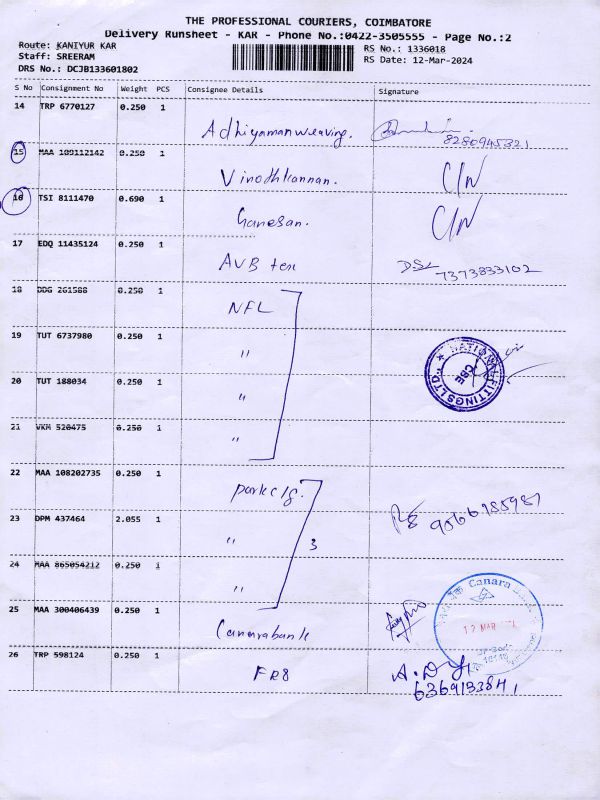 THE PROFESSIONAL COURIERS, COIMBATORE
Delivery Runsheet - KAR - Phone No.:0422-3505555 - Page No.:2
Route: KANIYUR KAR
RS No.: 1336018
Staff: SREERAM
RS Date: 12-Mar-2024
DRS No.: DCJB133601802
S No Consignment No Weight PCS Consignee Details Signature
14 TRP 6770127 0.250 1
Adhiyaman weaving. 8280945321
15 MAA 109112142 0.250 1
Vinodhkannan. C/N
16 TSI 8111470 0.690 1
Ganesan. C/N
17 EDQ 11435124 0.250 1
AVB tex 7373833102
18 DDG 261588 0.250 1
NFL
19 TUT 6737980 0.250 1
"
NATIONAL FITTINGS LTD CBE
20 TUT 188034 0.250 1
"
21 VKM 520475 0.250 1
"
22 MAA 108202735 0.250 1
parkclg.
23 DPM 437464 2.055 1
" 3
24 MAA 865054212 0.250 1
"
25 MAA 300406439 0.250 1
Canarabank
Canara
12 MAR
26 TRP 598124 0.250 1
FR8